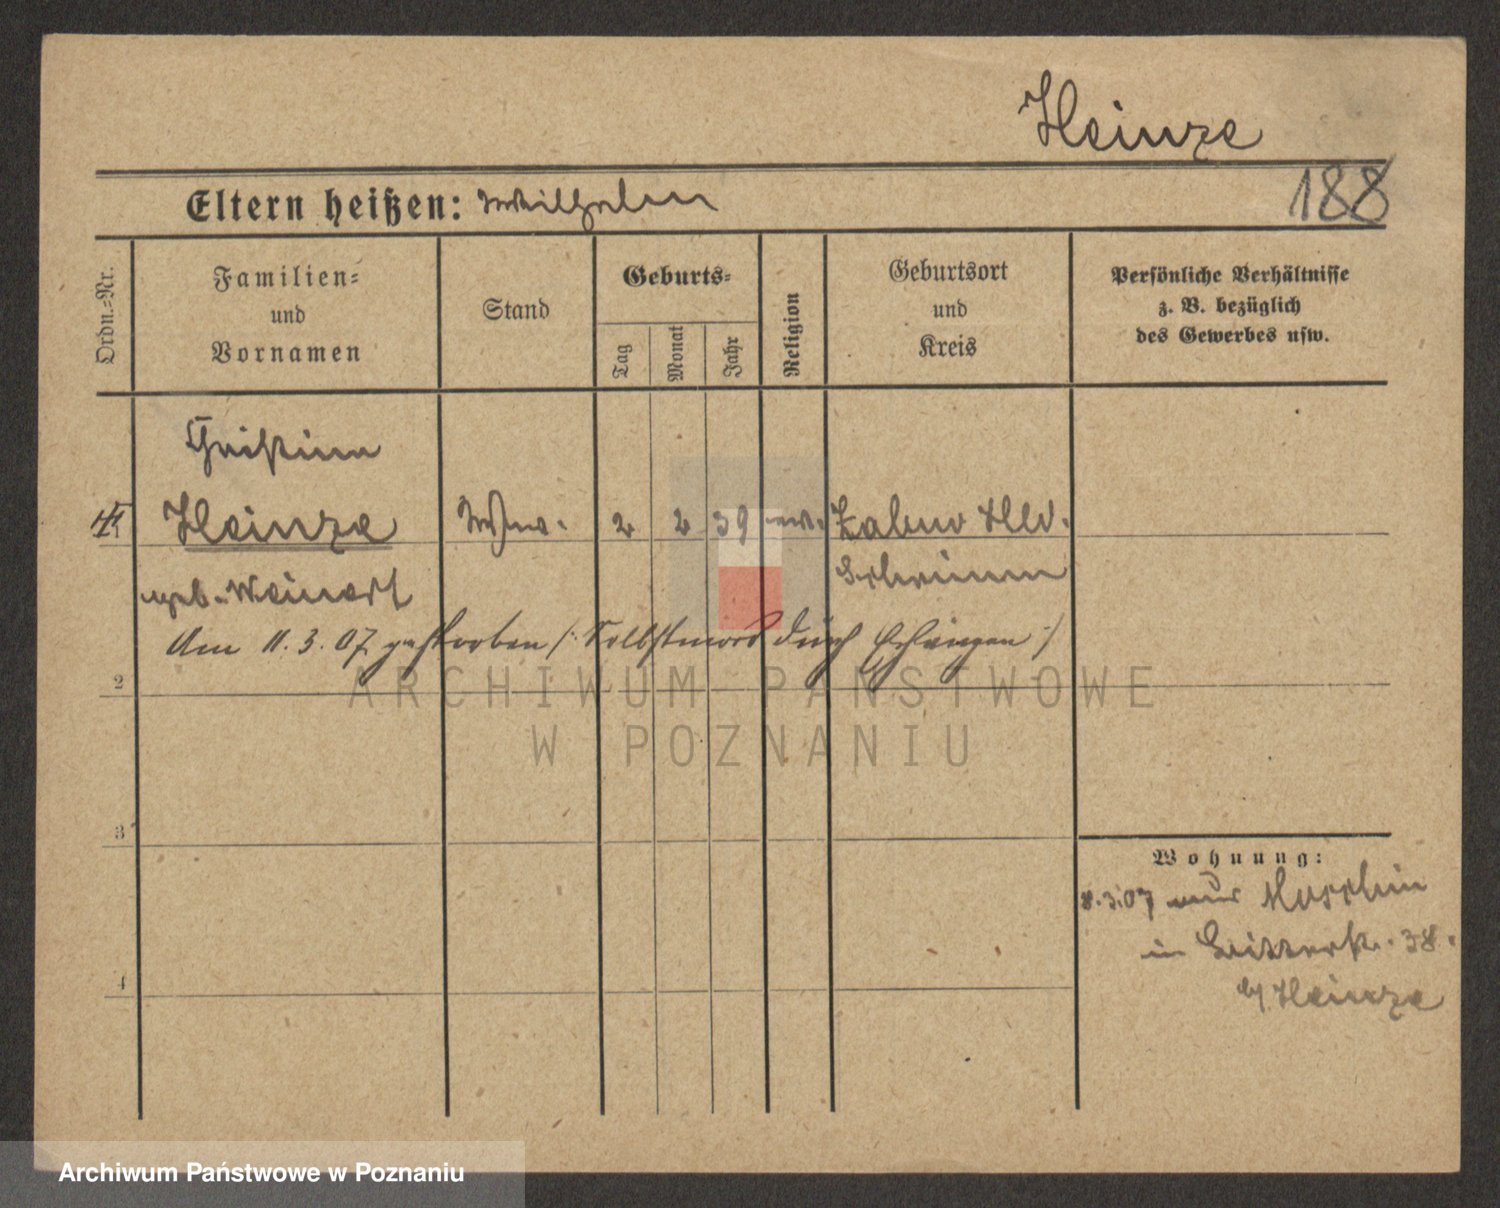 Heinze
188
Eltern heißen: Wilhelm
Ordn.=Nr.
Familien=
und
Vornamen
Stand
Geburts=
Tag
Monat
Jahr
Religion
Geburtsort
und
Kreis
Persönliche Verhältnisse
z. B. bezüglich
des Gewerbes usw.
Heinze
Ww.
2
2
39
ev.
Zabno Hld.
Schrimm
geb. Weinert
Am 11.3.07 gestorben /: Selbstmord durch Erhängen :/
2
3
4
Wohnung:
8.3.07 aus Moschin
in 38.
bei Heinze
ARCHIWUM PAŃSTWOWE
W POZNANIU
Archiwum Państwowe w Poznaniu